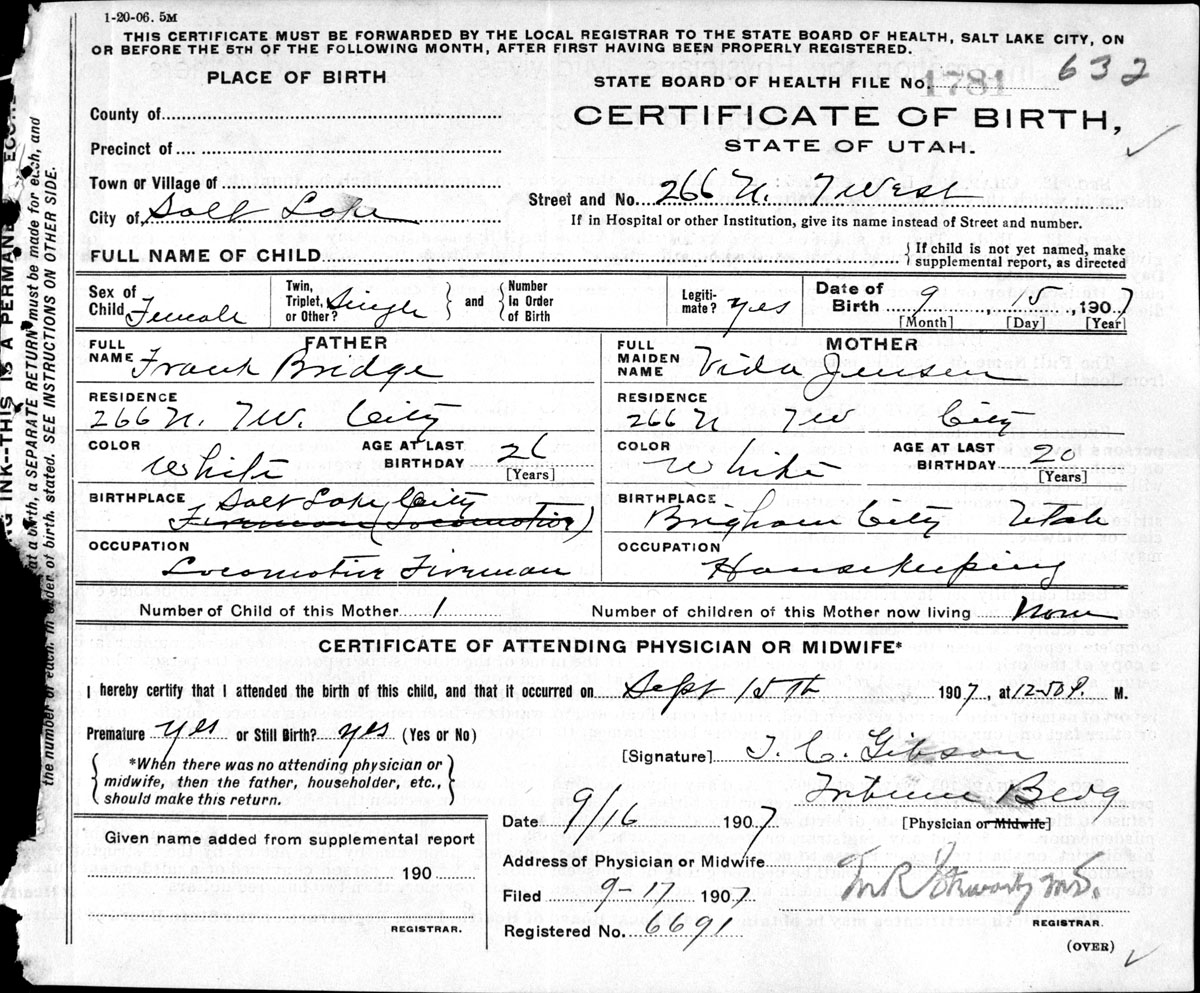 1-20-06. 5M
THIS CERTIFICATE MUST BE FORWARDED BY THE LOCAL REGISTRAR TO THE STATE BOARD OF HEALTH, SALT LAKE CITY, ON
OR BEFORE THE 5TH OF THE FOLLOWING MONTH, AFTER FIRST HAVING BEEN PROPERLY REGISTERED.
PLACE OF BIRTH
STATE BOARD OF HEALTH FILE No. 1781 632
County of
CERTIFICATE OF BIRTH,
Precinct of
STATE OF UTAH.
Town or Village of
Street and No. 266 N. 7 West
City of, Salt Lake
If in Hospital or other Institution, give its name instead of Street and number.
FULL NAME OF CHILD
{If child is not yet named, make
supplemental report, as directed
Sex of Child Female
Twin, Triplet, or Other? Single
and
Number In Order of Birth
Legiti- mate? yes
Date of Birth 9, 15, 1907
[Month] [Day] [Year]
FATHER
FULL NAME Frank Bridge
MOTHER
FULL MAIDEN NAME Vida Jensen
RESIDENCE
266 N. 7 W. City
RESIDENCE
266 N 7 W City
COLOR White
AGE AT LAST BIRTHDAY 26
[Years]
COLOR White
AGE AT LAST BIRTHDAY 20
[Years]
BIRTHPLACE Salt Lake City
Fireman (Locomotive)
BIRTHPLACE
Brigham City Utah
OCCUPATION
Locomotive Fireman
OCCUPATION
Housekeeping
Number of Child of this Mother 1
Number of children of this Mother now living None
CERTIFICATE OF ATTENDING PHYSICIAN OR MIDWIFE*
I hereby certify that I attended the birth of this child, and that it occurred on Sept 15th 1907, at 12-50 P. M.
Premature yes or Still Birth? yes (Yes or No)
{*When there was no attending physician or
midwife, then the father, householder, etc.,
should make this return.}
[Signature] J. C. Gibson
Tribune Bldg
[Physician or Midwife]
Date 9/16 1907
Given name added from supplemental report
190
REGISTRAR.
Address of Physician or Midwife
Filed 9-17 1907
Registered No. 6691
REGISTRAR.
(OVER)
NG INK--THIS IS A PERMANE
at a birth, a SEPARATE RETURN must be made for each, and
the number of each, in order of birth, stated. SEE INSTRUCTIONS ON OTHER SIDE.